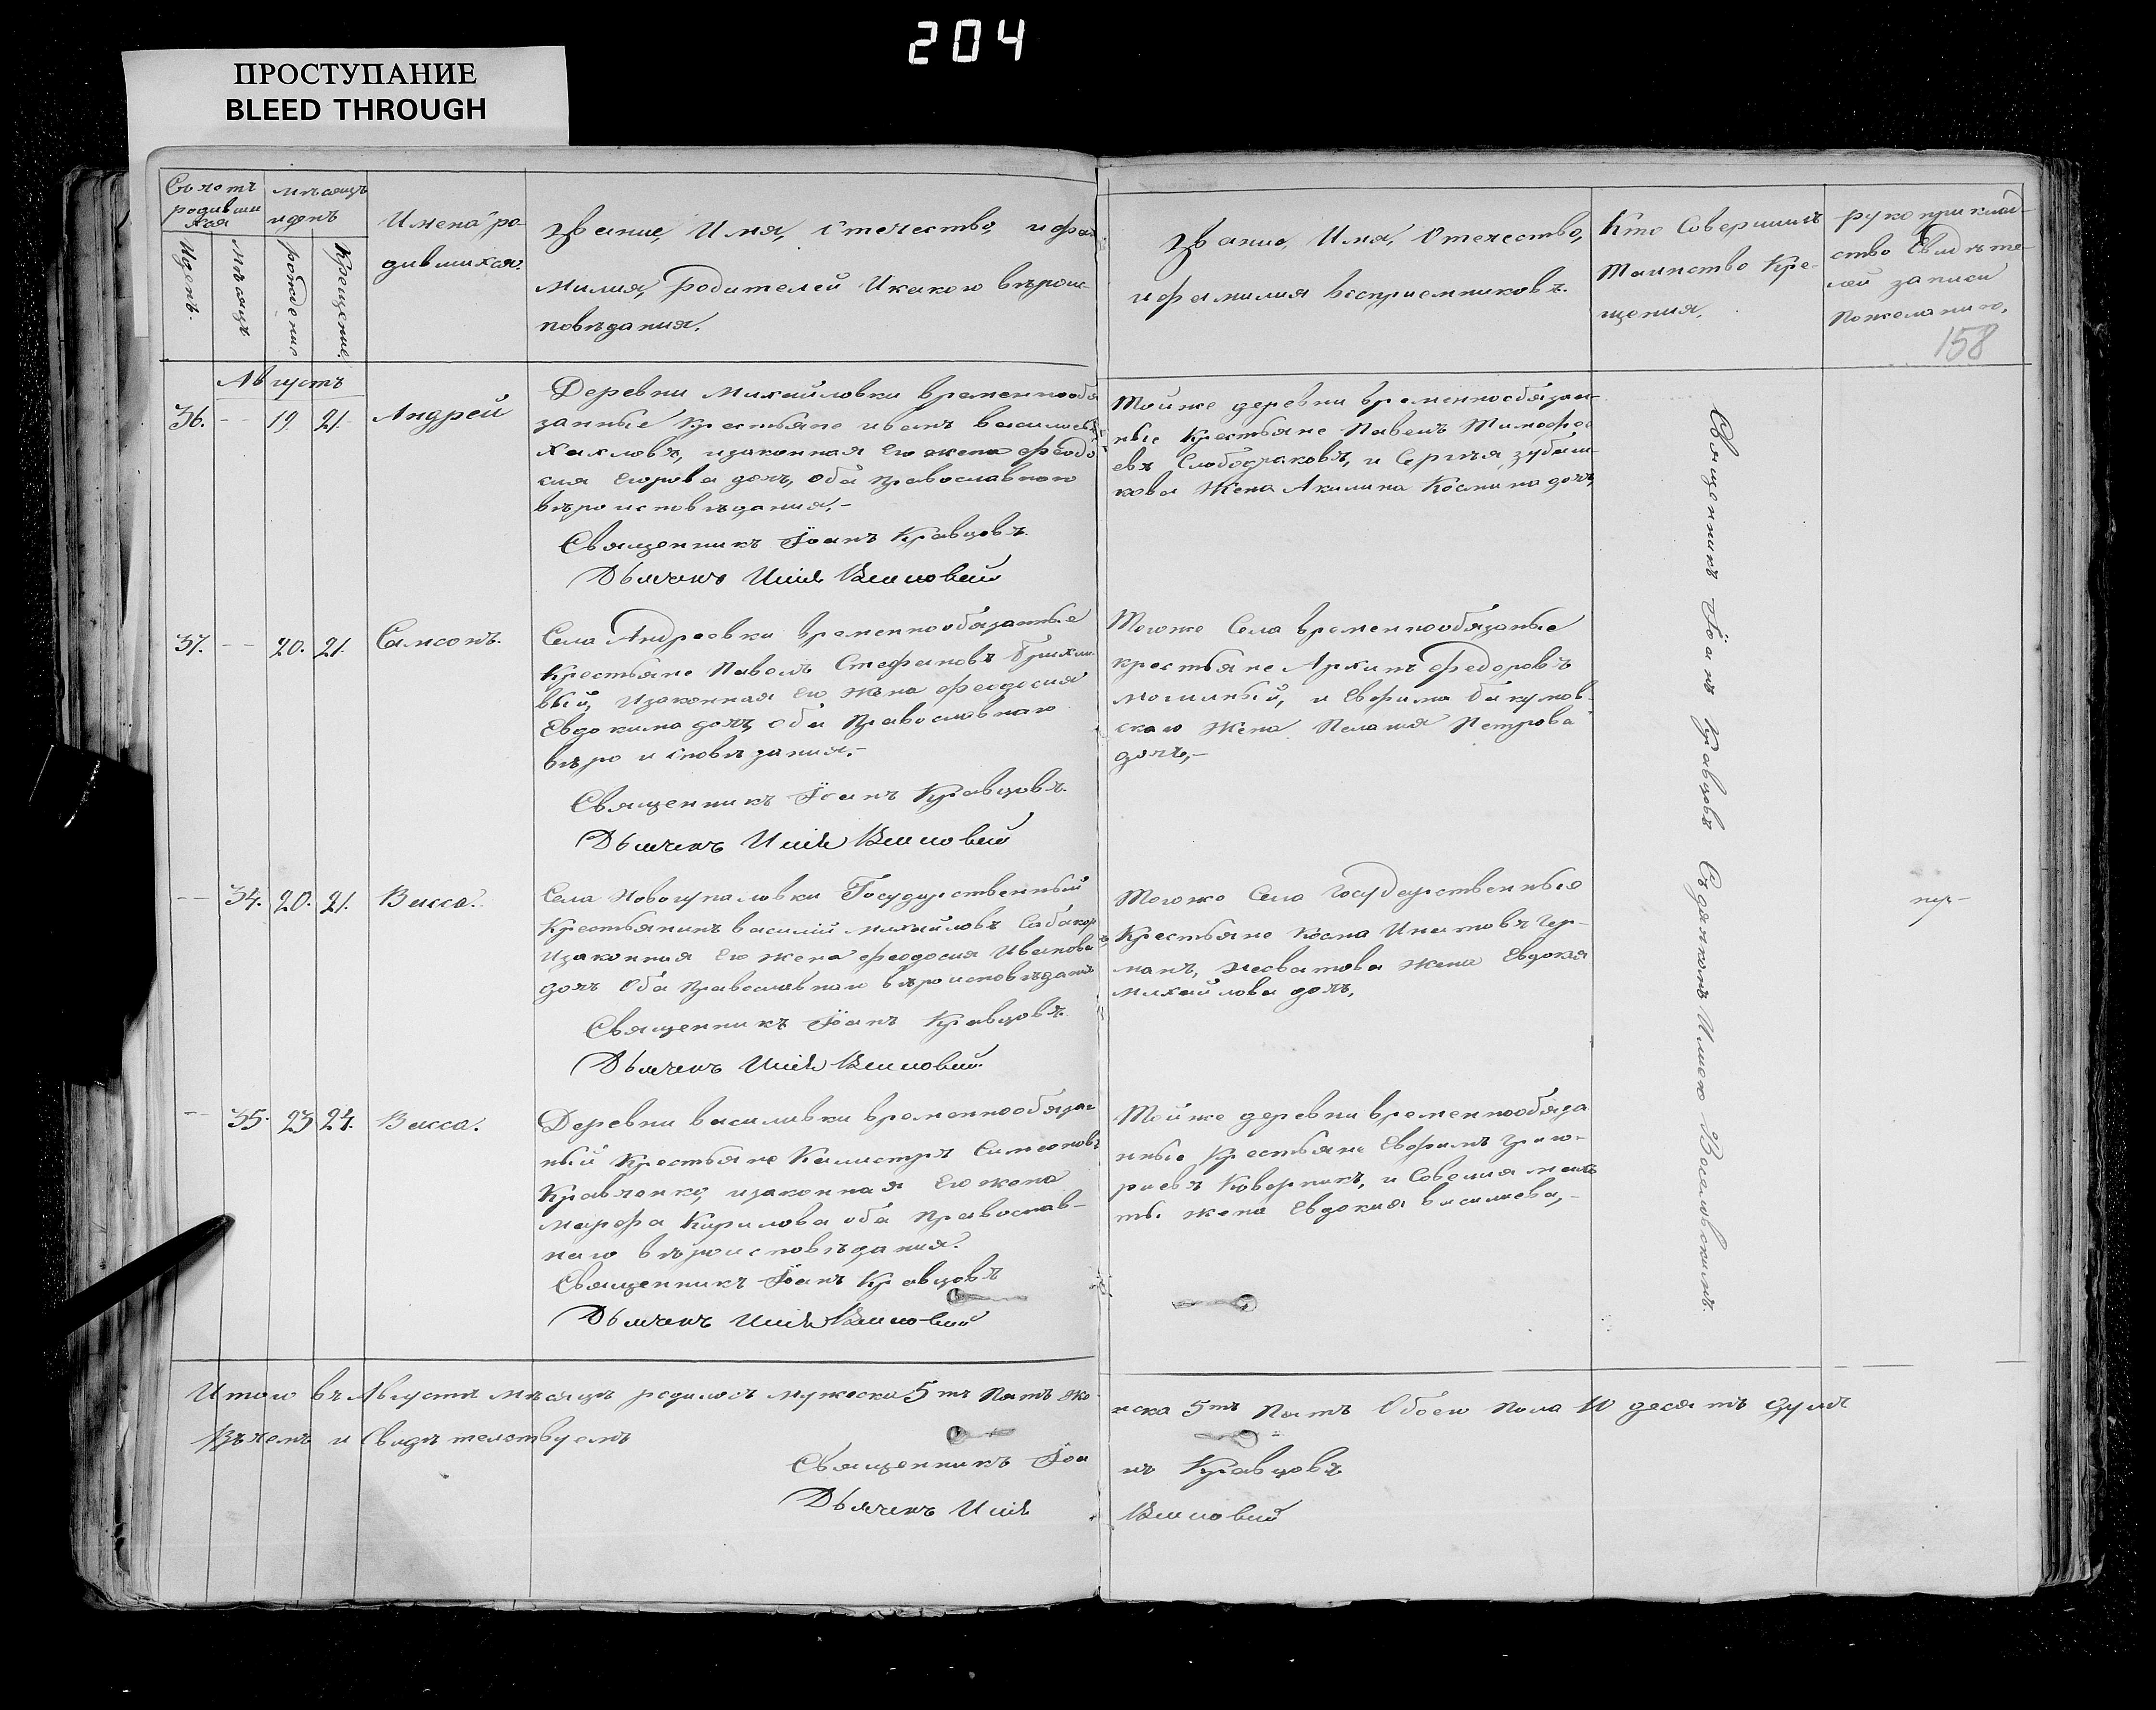 204
ПРОСТУПАНИЕ
BLEED THROUGH
Счетъ
родивши
хся
мѣсяцъ
и день
Имена ро-
дившихся.
Званіе, Имя, Отечество, и фа-
милія, родителей и какого вѣроис-
повѣданія.
Званіе, Имя, Отечество,
и фамилія воспріемниковъ.
Кто Совершилъ
Таинство Кре-
щенія.
рукоприклад-
ство Свидѣте-
лей записи
По желанію.
158
рожденіе
Крещеніе.
Августъ
36. -- 19. 21. Андрей
Деревни Михайловки временнообя
занные Крестьяне Иванъ Васильевъ
Хахловъ, изаконная Его жена Феодо
сия Егорова дочь, оба Православнаго
вѣроисповѣдания.-
Священникъ Іоанъ Кравцовъ.
Дьячекъ
Тойже деревни временнообязан-
ные Крестьяне Павелъ Тимофе
евъ и Сергѣя
кова Жена Акилина Космина дочь,
37. -- 20. 21. Самсонъ.
Села Андреевки временнообязанные
Крестьяне Павелъ Стефановъ
вый, Изаконная Его Жена Феодосия
Евдокима дочь, оба Православнаго
вѣроисповѣдания.-
Священникъ Іоанъ Кравцовъ.
Дьячекъ
Тогоже Села временнообязаные
крестьяне Архипъ Федоровъ
Могилный, и Евфима
скаго Жена Пелагия Петрова
дочь,-
-- 34. 20. 21. Васса.
Села Новогупаловки Государственный
Крестьянинъ Василий Михайловъ
Изаконная Его Жена Феодосия Иванова
дочь Оба Православнаго вѣроисповѣдания
Священникъ Іоанъ Кравцовъ.
Дьячекъ
Тогоже Села Государственные
Крестьяне Косма Игнатовъ Гер-
манъ, Жена Евдокия
Михайлова дочь,
-- 35. 23. 24. Васса.
Деревни Василивки временнообязан
ный Крестьяне Калистръ Симеоновъ
Кравченко, изаконная Его жена
Марфа Кирилова оба Православ-
наго вѣроисповѣдания.
Священникъ Іоанъ Кравцовъ
Дьячекъ
Тойже деревни временнообяза
нные Крестьяне Евфимъ Григо-
риевъ Коверникъ, и Савелия
жена Евдокия Василиева,-
Священникъ Іоанъ Кравцовъ Съ дячкомъ
Итого въ Августѣ мѣсяцѣ родилось мужеска 5ть Пять Же
нска 5ть Пять Обоего Пола 10 десять Душъ
Въ чемъ и Свидѣтелствуемъ
Священникъ Іоа
нъ Кравцовъ
Дьячекъ